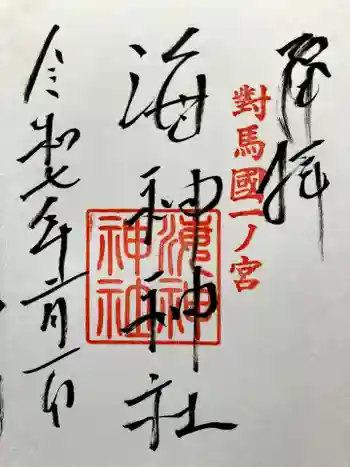 拝
對馬國一ノ宮
海神神社
海神
神社
令和七年
月一日